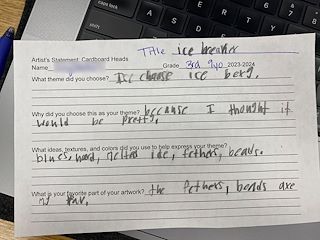 Title ice breaker
Artist's Statement: Cardboard Heads
Name Grade 3rd 9yo 2023-2024
What theme did you choose? I choose ice berg.
Why did you choose this as your theme? because I thought it
would be pretty.
What ideas, textures, and colors did you use to help express your theme?
blues, hard, melted ice, fethers, beads.
What is your favorite part of your artwork? the fethers, beads are
my fav.